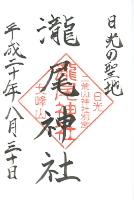 日光の聖地
瀧尾神社
平成二十年八月三十日
日光
二荒山神社別宮